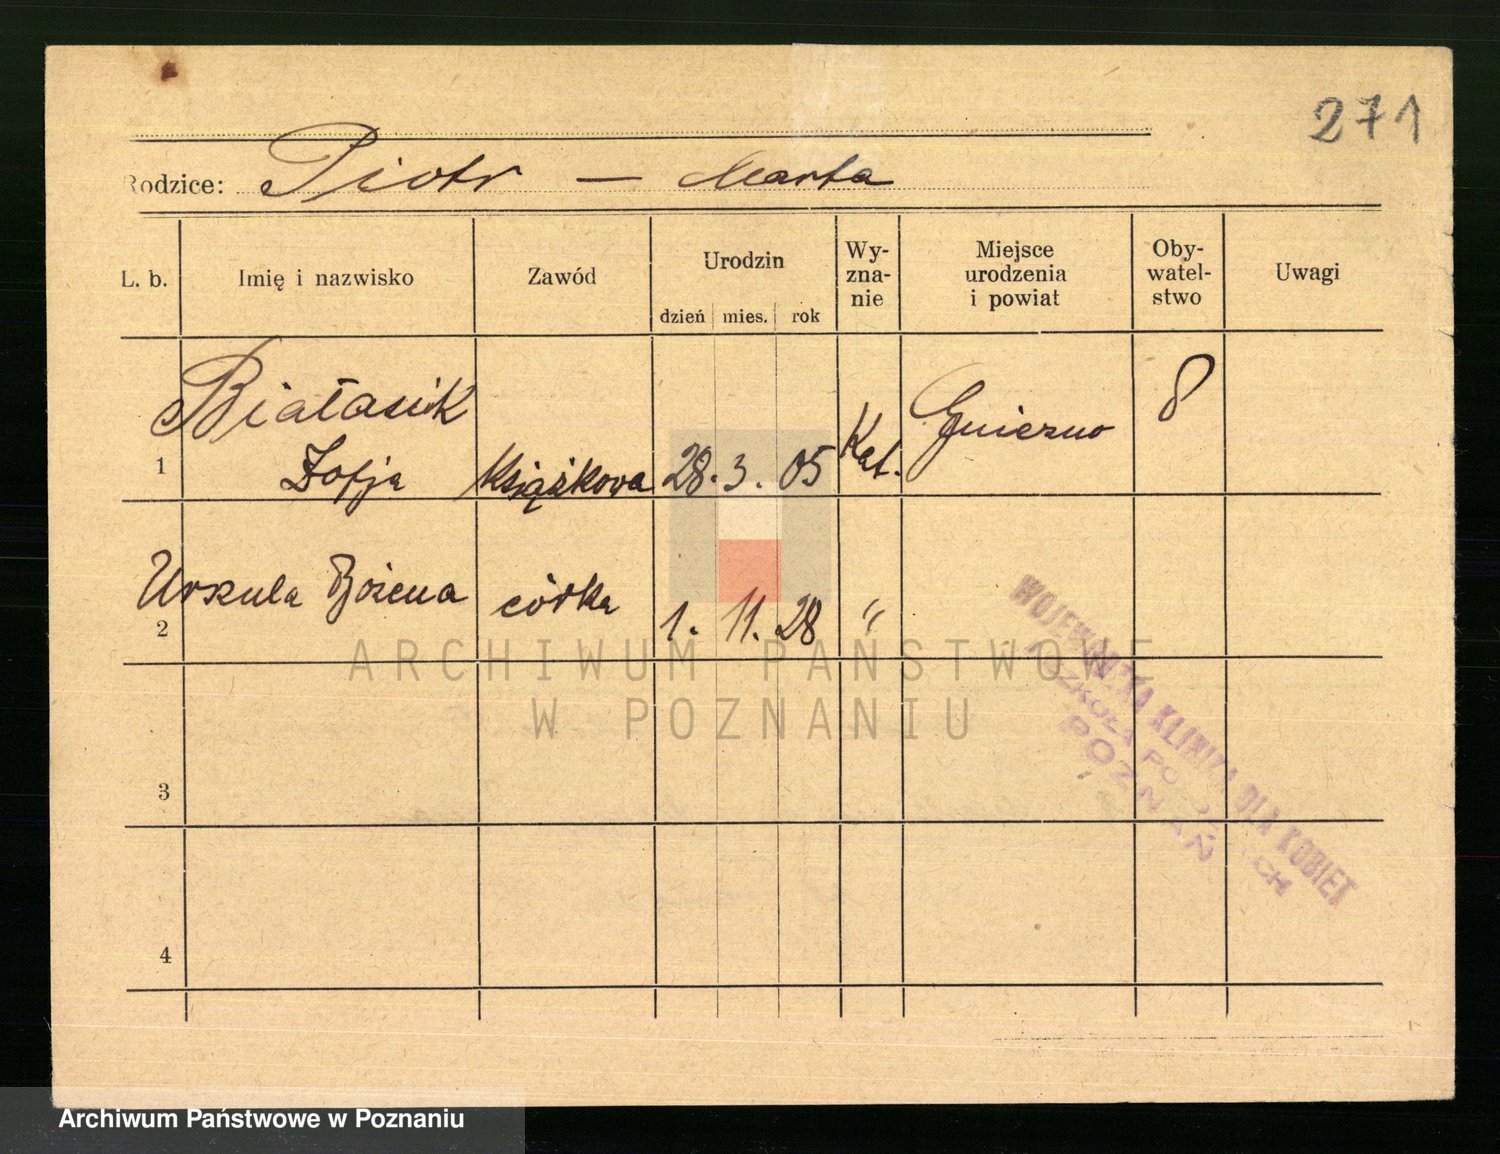 271
Rodzice: Piotr — Marta
L. b. Imię i nazwisko Zawód Urodzin Wy-zna-nie Miejsce urodzenia i powiat Oby-watel-stwo Uwagi
dzień mies. rok
Białasik
1 Zofja Książkowa 28. 3. 05 Kat. Gniezno
2 Urszula Bożena córka 1. 11. 28 "
3
4
WOJEWÓDZKA KLINIKA DLA KOBIET
POZNAŃ
ARCHIWUM PAŃSTWOWE
W POZNANIU
Archiwum Państwowe w Poznaniu